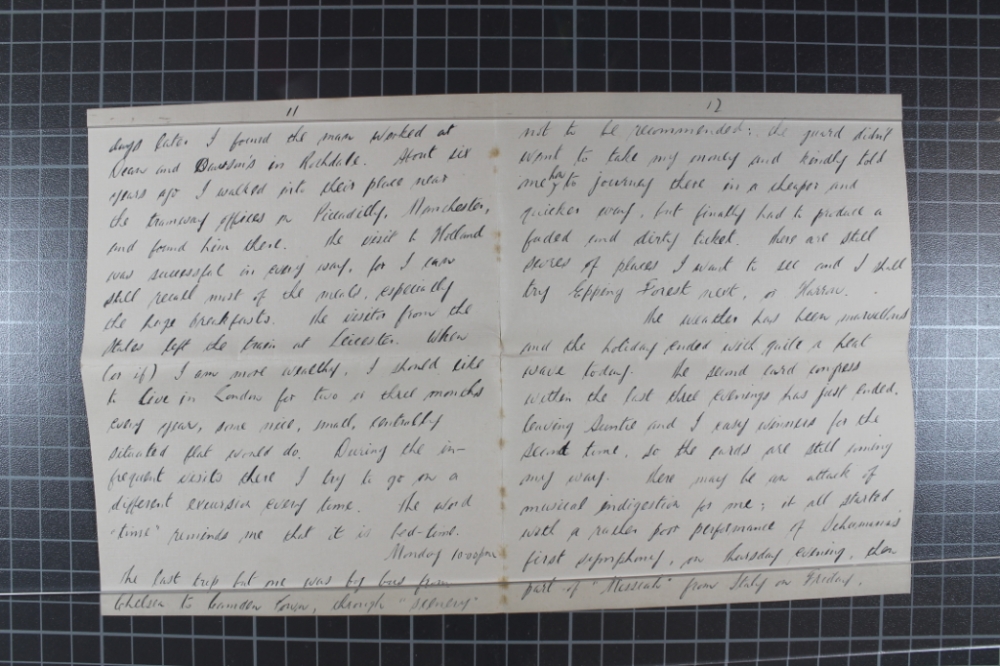 11
days later I found the man worked at
Dean and Dawson's in Rochdale. About six
years ago I walked into their place near
the tramway offices on Piccadilly, Manchester,
and found him there. The visit to Holland
was successful in every way, for I can
still recall most of the meals, especially
the huge breakfasts. The visitors from the
States left the train at Leicester. When
(or if) I am more wealthy, I should like
to live in London for two or three months
every year, some nice, small, centrally
situated flat would do. During the in-
frequent visits there I try to go on a
different excursion every time. The word
"time" reminds me that it is bed-time.
Monday 10.00pm
The last trip but one was by bus from
Chelsea to Camden Town, through "scenery"
12
not to be recommended; the guard didn't
want to take my money and kindly told
me how to journey there in a cheaper and
quicker way, but finally had to produce a
faded and dirty ticket. There are still
scores of places I want to see and I shall
try Epping Forest next, or Harrow.
The weather has been marvellous
and the holiday ended with quite a heat
wave today. The second card congress
within the last three evenings has just ended,
leaving Auntie and I easy winners for the
second time, so the cards are still coming
my way. There may be an attack of
musical indigestion for me; it all started
with a rather poor performance of Schumann's
first symphony, on Thursday evening, then
part of "Messiah" from Italy on Friday,